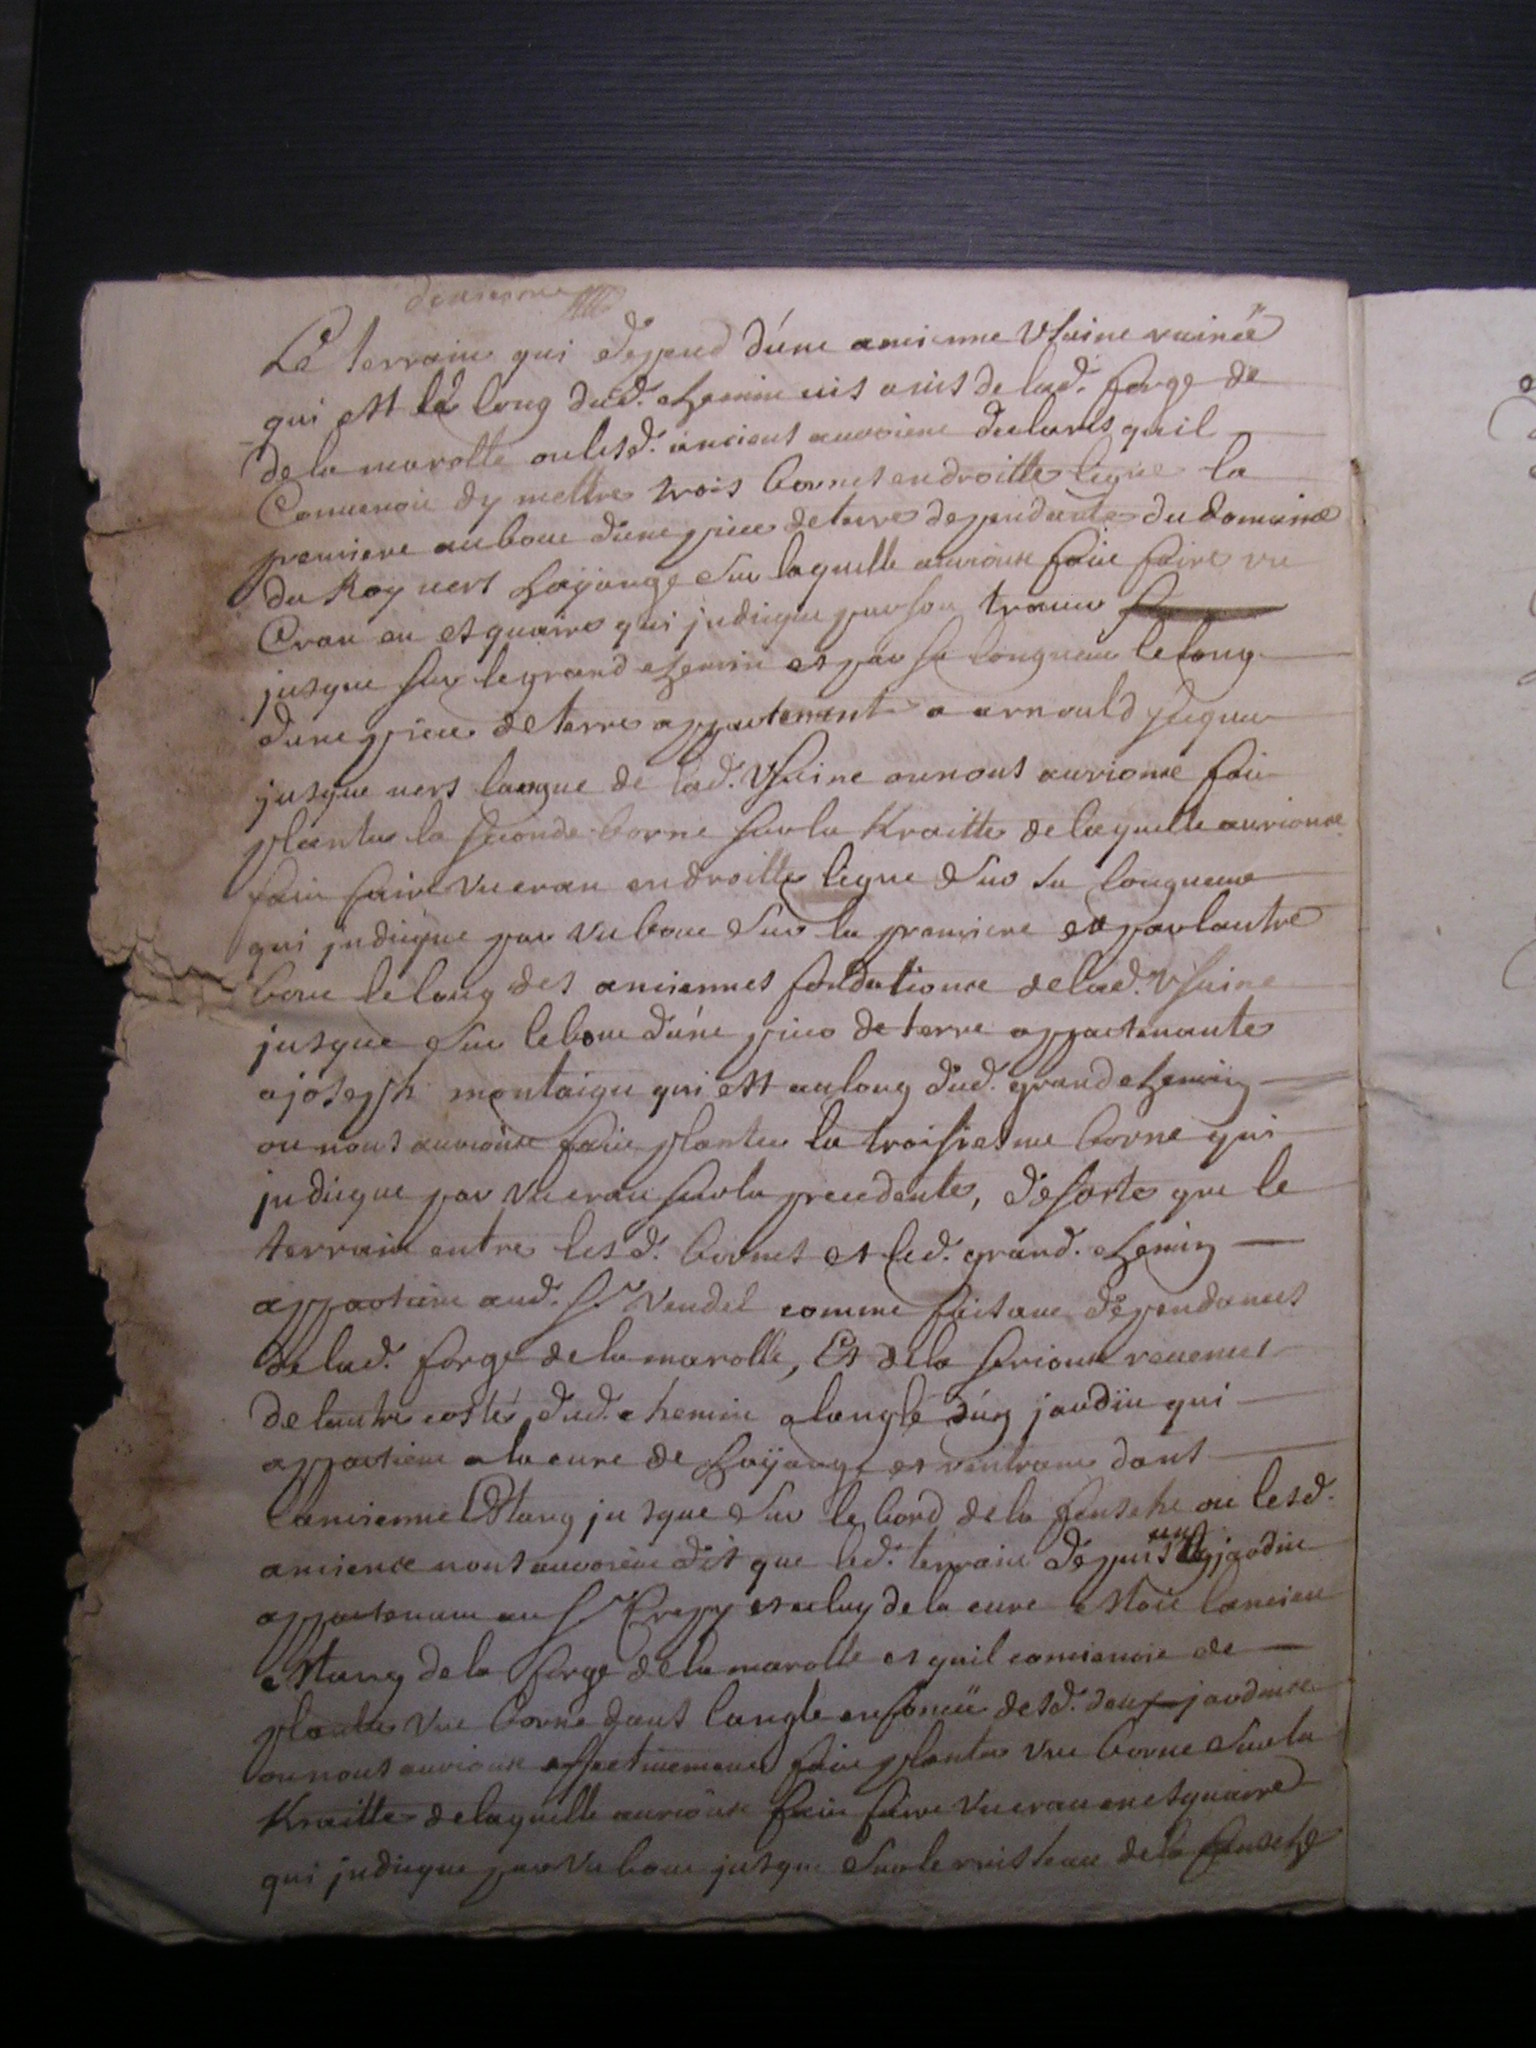 deuxiesme
Le terrain qui depend d'une ancienne Vsuine ruinée
qui est le long dud. chemin vis a vis de lad. forge de
de la marolle ou lesd. anciens auroient declarés quil
Conuenoit dy mettre trois bornes en droitte ligne la
premiere au bout d'une piece de terre dependante du domaine
du Roy vers hayange sur laquelle aurionse fait faire vn
Cran en esquaire qui judicque par son trauer
jusque sur le grand chemin et par sa longueur le long
d'une piece de terre appartenant a arnould
jusque vers langue de lad. Vsuine ou nous aurionse fait
planter la seconde borne sur la Kraitte de laquelle aurionse
fait faire vn cran en droitte ligne sur sa longueur
qui judicque par vn bout sur la premiere et par lautre
bout le long des anciennes fondationse de lad. Vsuine
jusque sur le bout d'une piece de terre appartenante
a joseph montaigu qui est au long dud. grand chemin
ou nous aurionse fait planter la troisiesme borne qui
judicque par vn cran sur la precedente, de sorte que le
terrain entre lesd. bornes et led. grand. chemin
appartient aud. Sr Vendel comme faisant dependances
de lad. forge de la marolle, Et de la serionse reuenus
de lautre costé dud. chemin a langle d'ung jardin qui
appartient a la cure de hayange et rentrant dans
lancienne Estang jusque sur le bord de la fensche ou lesd.
anciense nous auroient dit que led. terrain depuis un jardin
appartenant au Sr Crepy et celuy de la cure estoit lancien
estang de la forge de la marolle et quil conuenoit de
planter vne borne dans langle enfoncü desd. deux jardinse
ou nous aurionse effectiuement fait planter vne borne sur la
Kraitte de laquelle aurionse fait faire vn cran en esquaire
qui judicque par vn bout jusque sur le ruisseau de la fensche